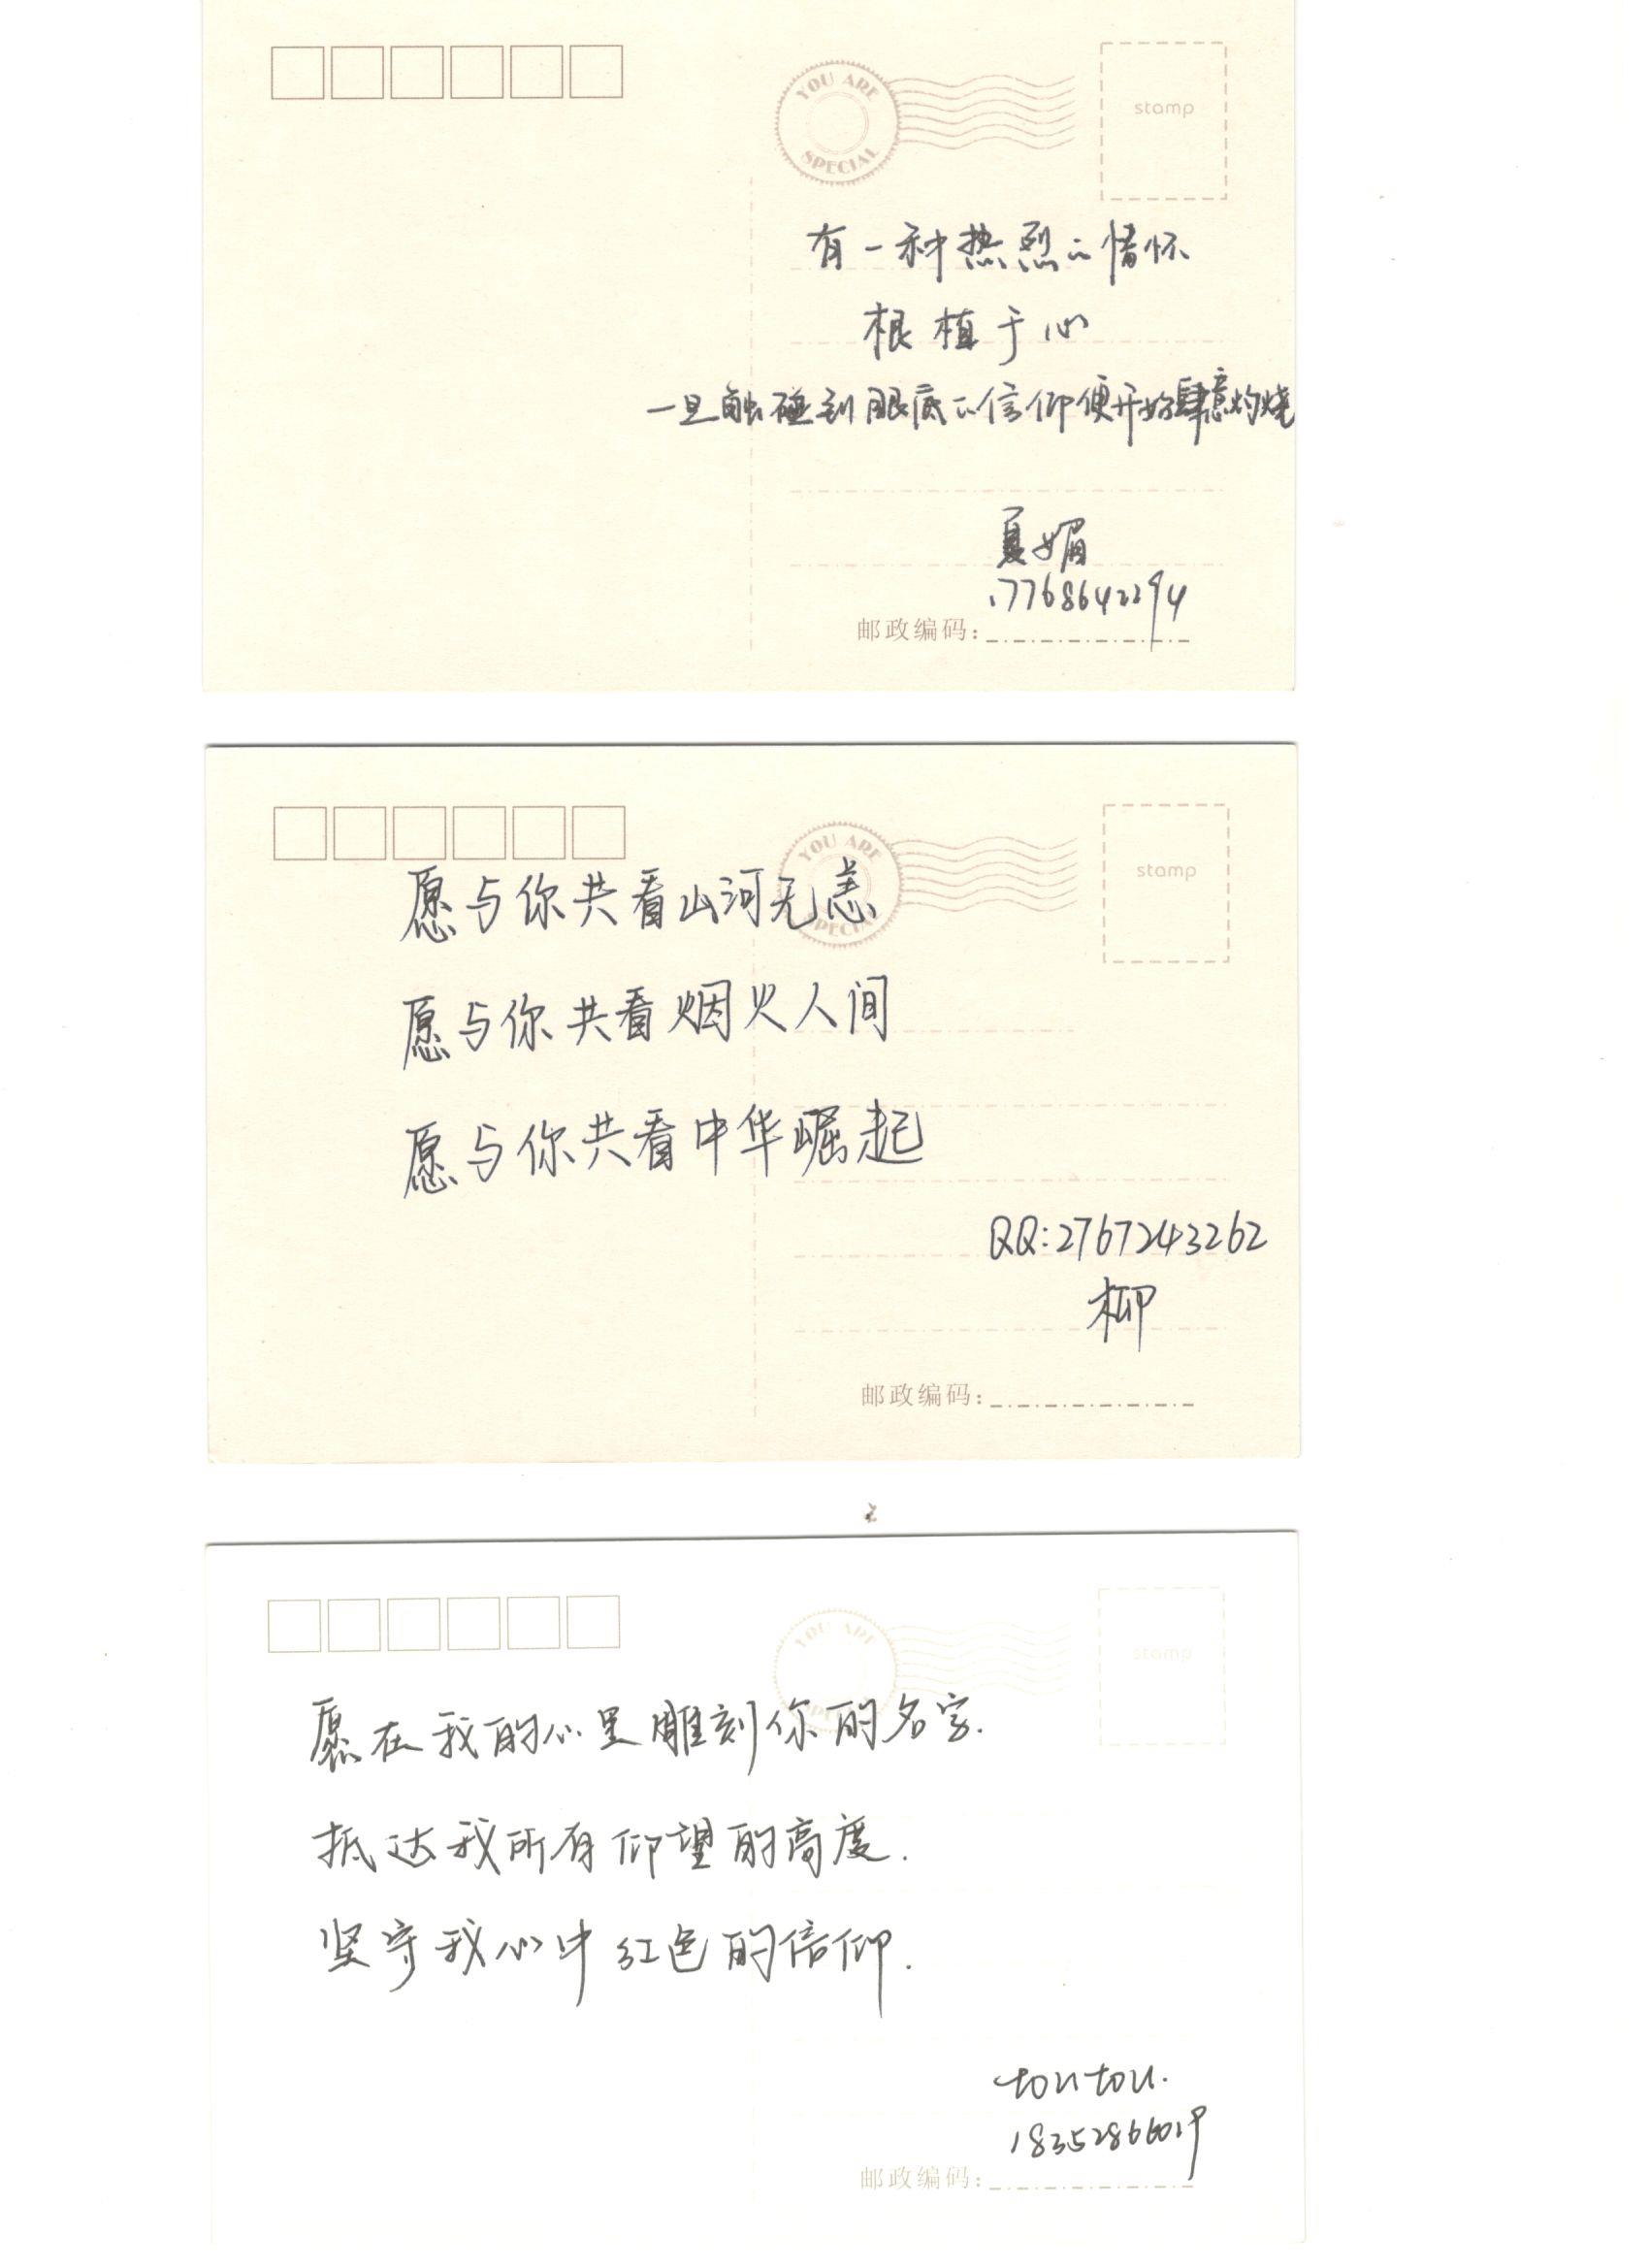 YOU ARE
SPECIAL
stamp
有一种热烈的情怀
根植于心
一旦触碰到眼底的信仰便开始肆意灼烧
夏媚
17768642294
邮政编码:
YOU ARE
SPECIAL
stamp
愿与你共看山河无恙
愿与你共看烟火人间
愿与你共看中华崛起
QQ:2767243262
柳
邮政编码:
YOU ARE
SPECIAL
stamp
愿在我的心里雕刻你的名字.
抵达我所有仰望的高度.
坚守我心中红色的信仰.
toutou.
18352866019
邮政编码: